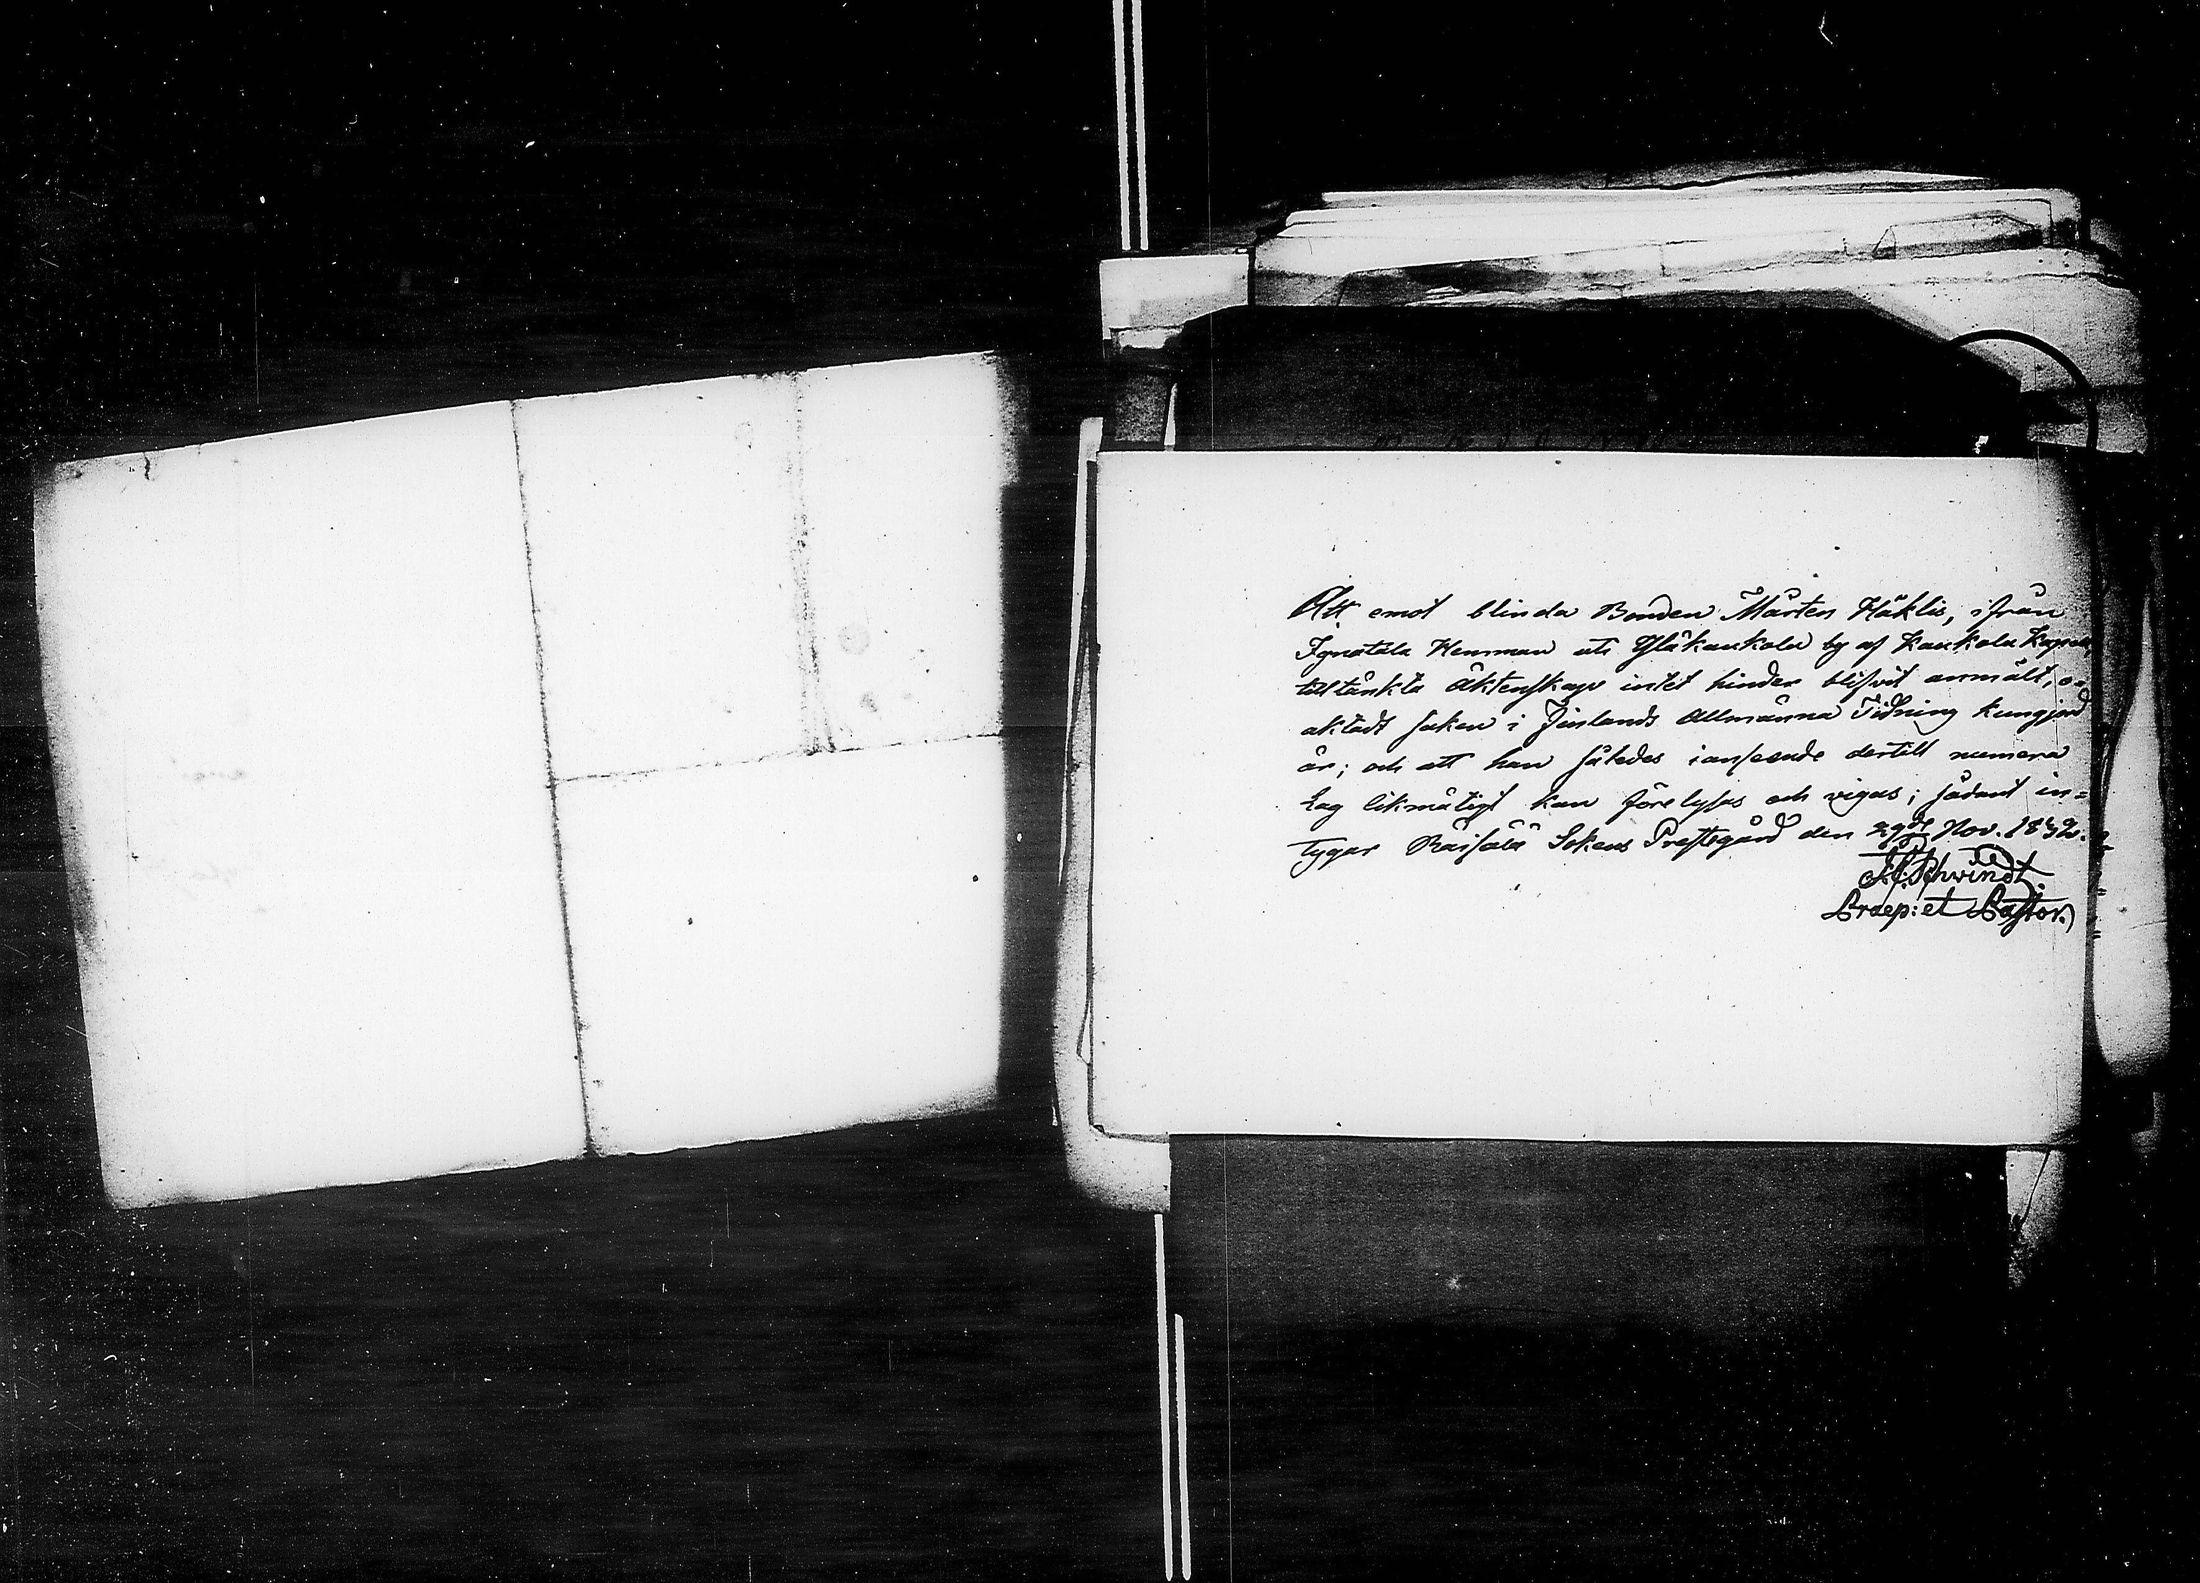 Att emot blinda Bonden Mårten Häkli, ifrån
Ignatala Hemman uti Yläkaukola by af Kaukola Kapell,
tilltänkta Äktenskap intet hinder blifvit anmält, o-
aktadt saken i Finlands Allmänna Tidning kungjord
är; och att han således i anseende dertill numera
Lag likmätigt kan förelysas och vigas; sådant in=
tygar Räisälä Sokens Prestegård den 29de Nov. 1832.
Schvindt.
Praep: et Pastor.